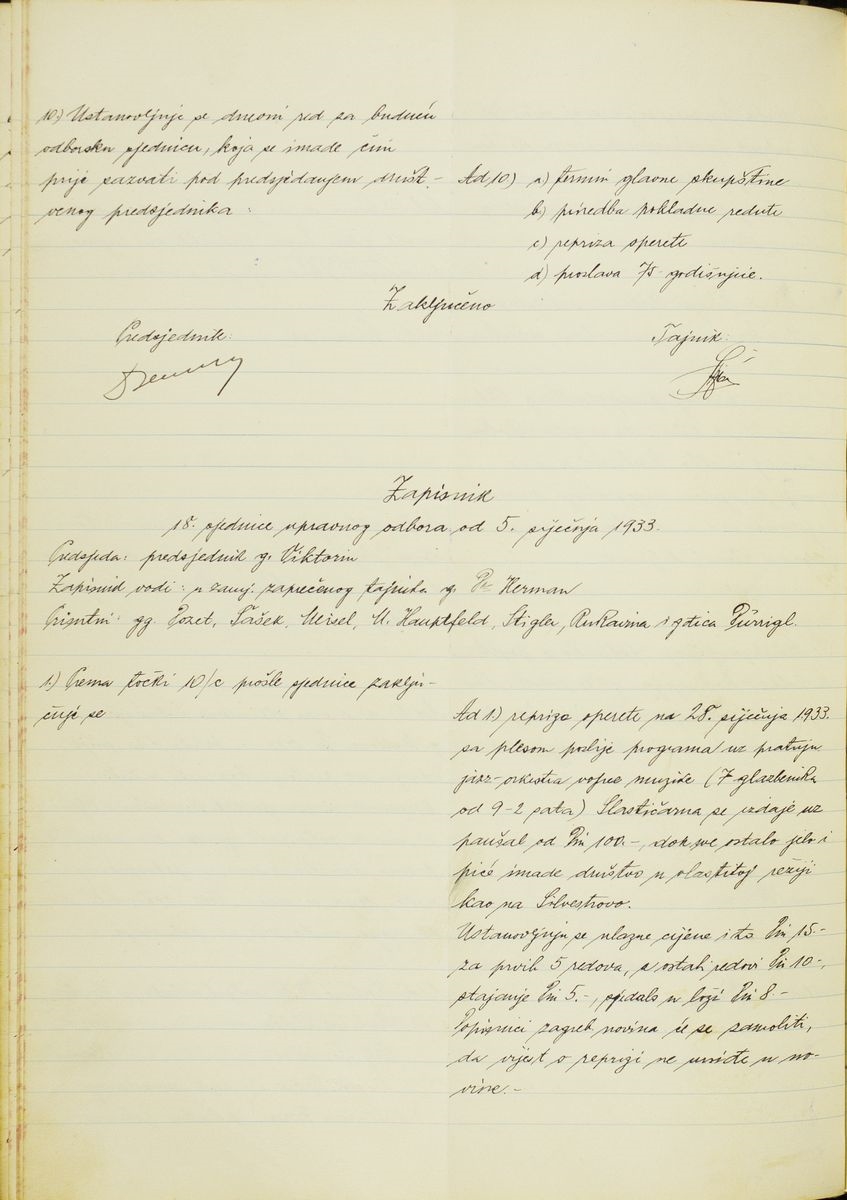 10.) Ustanovljuje se dnevni red za buduću
odborsku sjednicu, koja se imade čim
prije sazvati pod predsjedanjem društ-
venog predsjednika:
Ad 10) a) termin glavne skupštine
b) priredba pokladne redute
c) repriza operete
d) proslava 75-godišnjice.
Zaključeno
Predsjednik: Tajnik:
Zapisnik
18. sjednice upravnog odbora od 5. siječnja 1933.
Predsjeda: predsjednik g. Viktorin
Zapisnik vodi: u zamj. zaprečenog tajnika g. Dr Herman
Prisutni: gg. Pozet, Šašek, Meisel, M. Hauptfeld, Stigler, Rukavina i gđica Pürrigl.
1.) Prema točki 10/c prošle sjednice zaklju-
čuje se
Ad 1.) repriza operete na 28. siječnja 1933.
sa plesom poslije programa uz pratnju
jazz-orkestra vojne muzike (7 glazbenika
od 9-2 sata) Slastičarna se izdaje uz
paušal od Din 100.-, dok sve ostalo jelo i
piće imade društvo u vlastitoj režiji
kao na Silvestrovo.
Ustanovljuju se ulazne cijene i to Din 15.-
za prvih 5 redova, a ostali redovi Din 10.-,
stajanje Din 5.-, sjedalo u loži Din 8.-
Dopisnici zagreb. novina će se zamoliti,
da vijest o reprizi ne uvrste u no-
vine.-